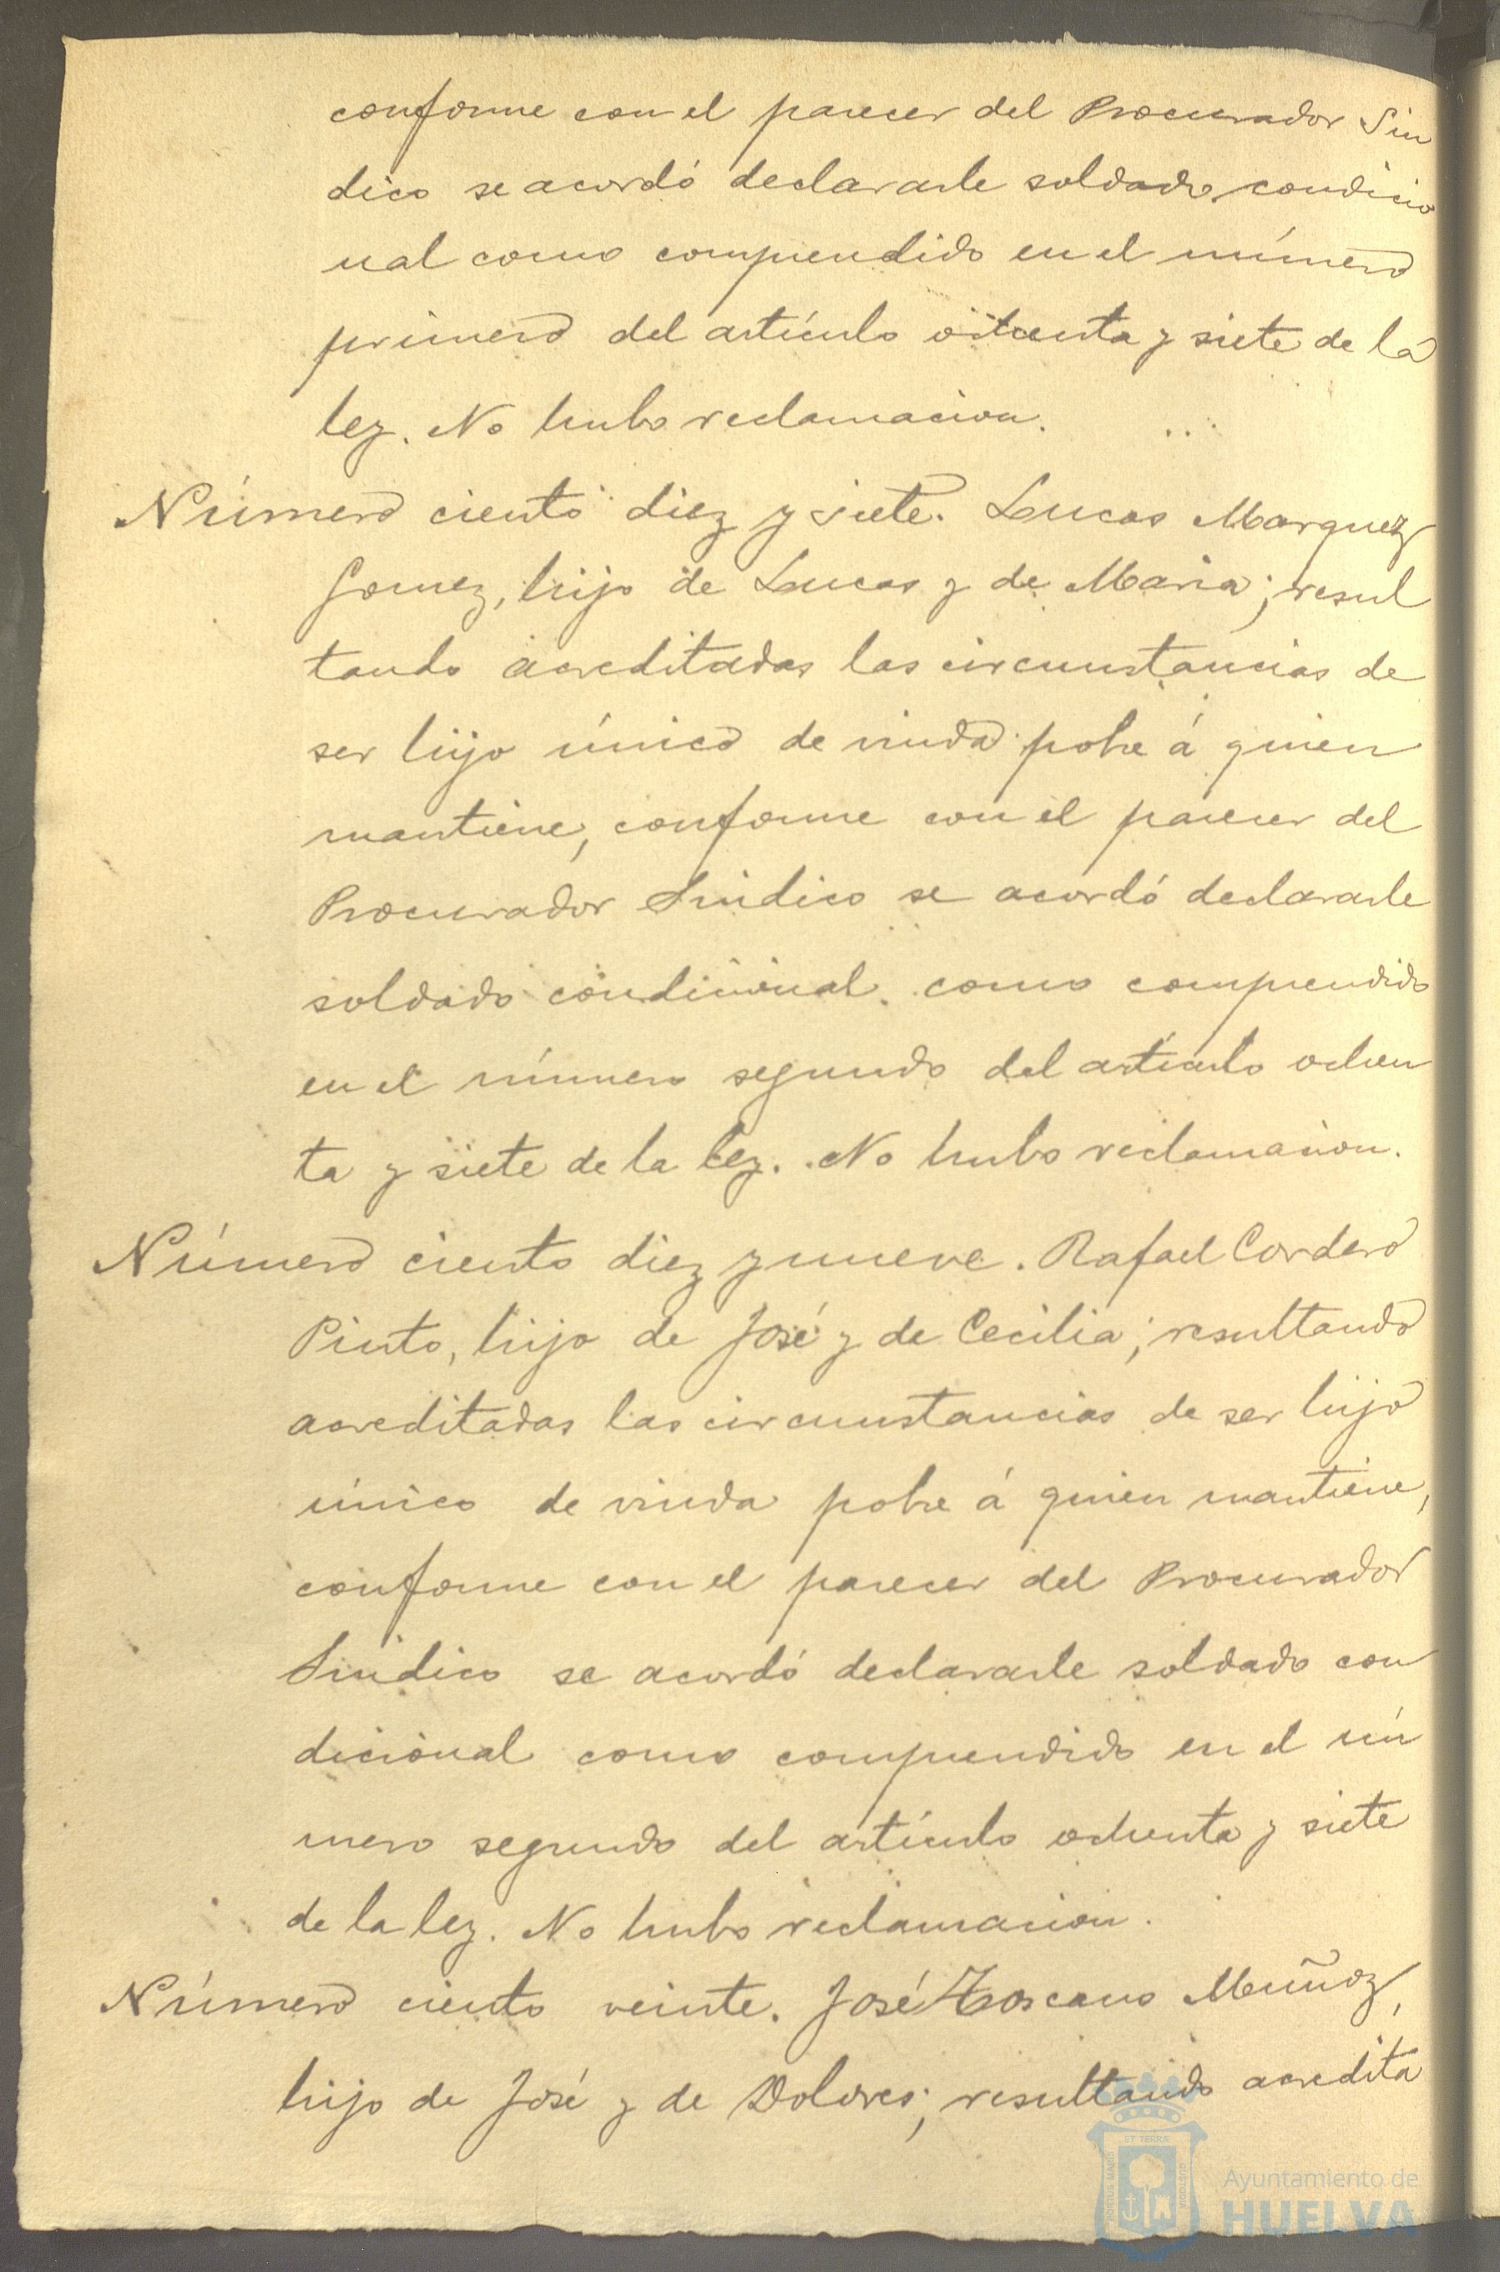 conforme con el parecer del Procurador Sin
dico se acordó declararle soldado condicio
nal como comprendido en el número
primero del artículo octenta y siete de la
ley. No hubo reclamacion.
Número ciento diez y siete. Lucas Marquez
Gomez, hijo de Lucas y de Maria; resul
tando acreditadas las circunstancias de
ser hijo único de viuda pobre á quien
mantiene, conforme con el parecer del
Procurador Sindico se acordó declararle
soldado condicional como comprendido
en el número segundo del artículo ochen
ta y siete de la ley. No hubo reclamacion.
Número ciento diez y nueve. Rafael Cordero
Pinto, hijo de José y de Cecilia; resultando
acreditadas las circunstancias de ser hijo
único de viuda pobre á quien mantiene,
conforme con el parecer del Procurador
Sindico se acordó declararle soldado con
dicional como comprendido en el nú
mero segundo del artículo ochenta y siete
de la ley. No hubo reclamacion.
Número ciento veinte. José Toscano Muñoz,
hijo de José y de Dolores; resultando acredita
Ayuntamiento de
HUELVA